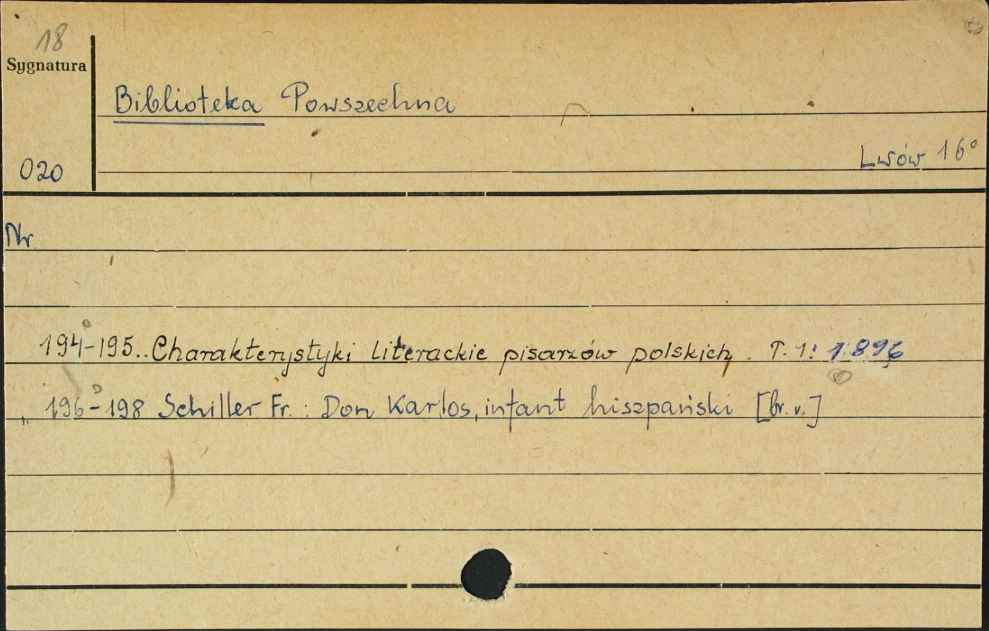 18
Sygnatura
Biblioteka Powszechna
020
Lwów 16°
Nr
194-195.. Charakterystyki literackie pisarzów polskich. T. 1: 1896
196-198 Schiller Fr.: Don Karlos, infant hiszpański [br. v.]